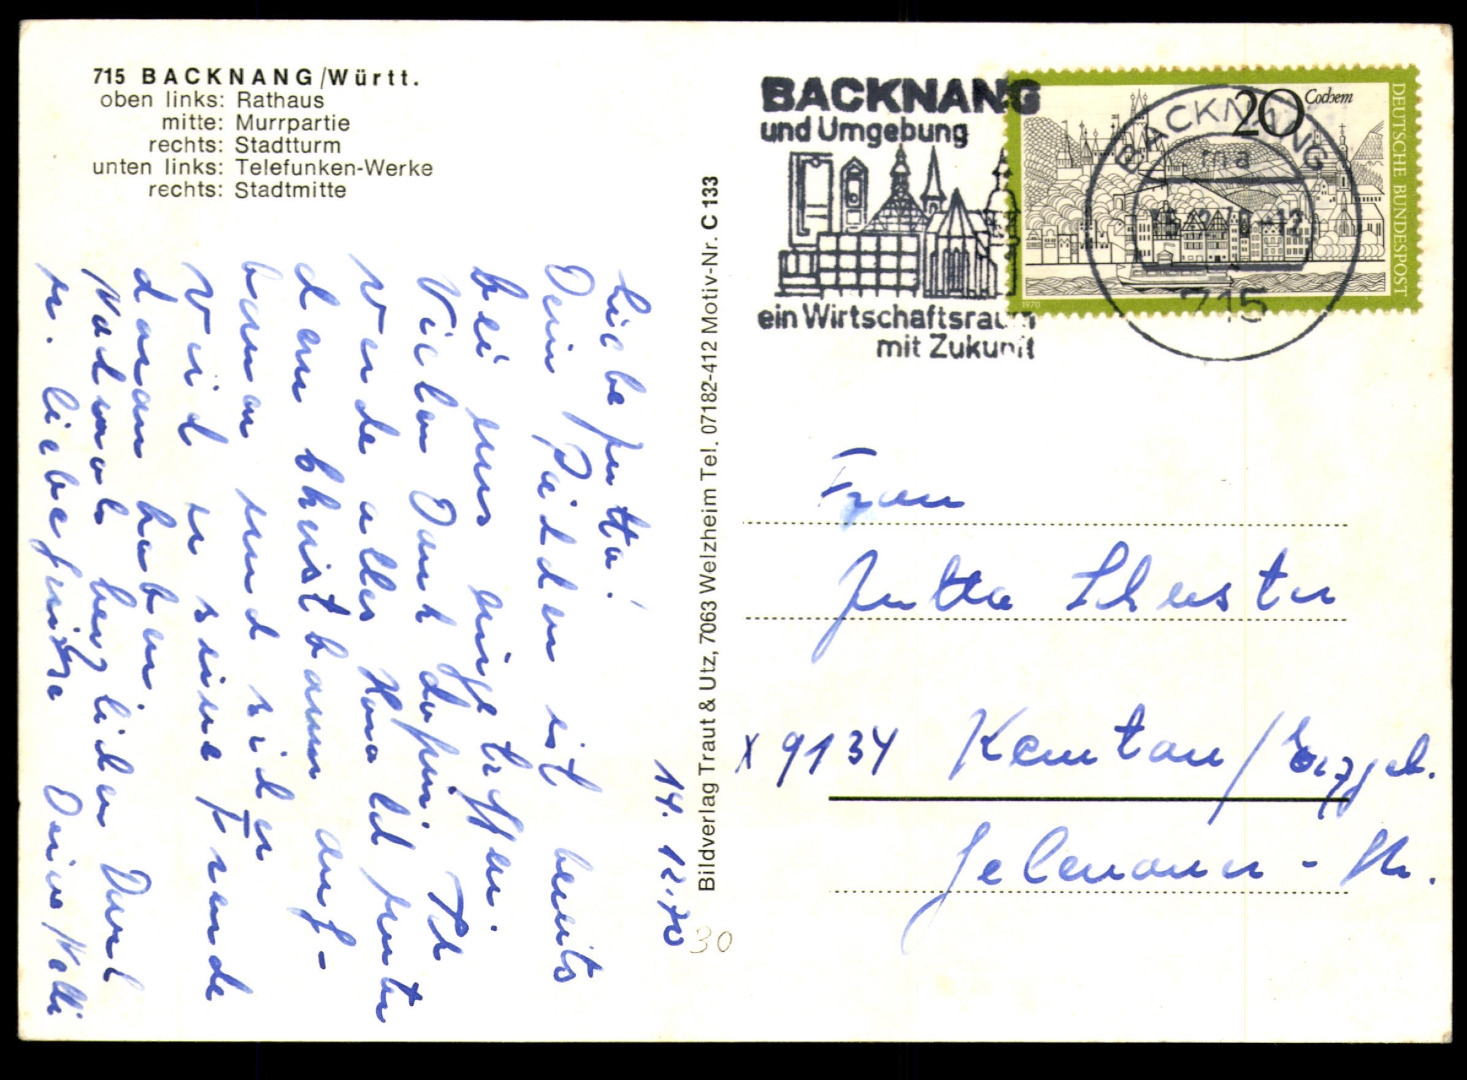 715 BACKNANG/Württ.
oben links: Rathaus
mitte: Murrpartie
rechts: Stadtturm
unten links: Telefunken-Werke
rechts: Stadtmitte
14.12.70
Liebe Jutta!
Dein Päckchen ist bereits
bei uns eingetroffen.
Vielen Dank dafür. Ich
werde alles Harald unter
dem Christbaum auf-
bauen und sicher
wird er seine Freude
daran haben.
Nochmals herzlichen Dank
u. liebe Grüße Deine Nelli
Bildverlag Traut & Utz, 7063 Welzheim Tel. 07182-412 Motiv-Nr. C 133
30
BACKNANG
und Umgebung
ein Wirtschaftsraum
mit Zukunft
20 Cochem
DEUTSCHE BUNDESPOST
1970
BACKNANG
ma
715
Frau
Jutta Schuster
X 9134 Kemtau/Erzgeb.